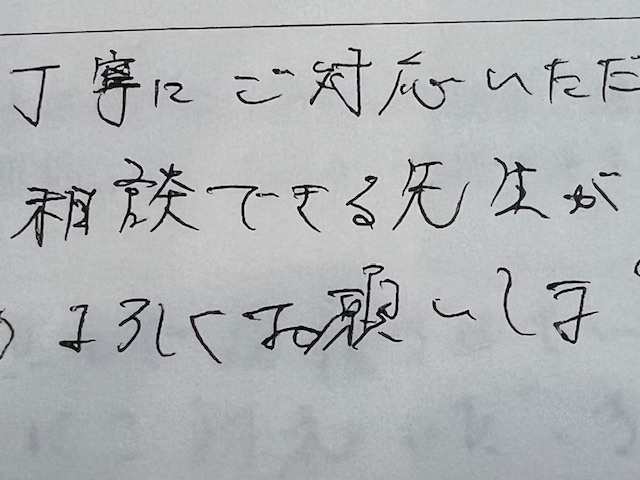 丁寧にご対応いただ
相談できる先生が
よろしくお願いしま